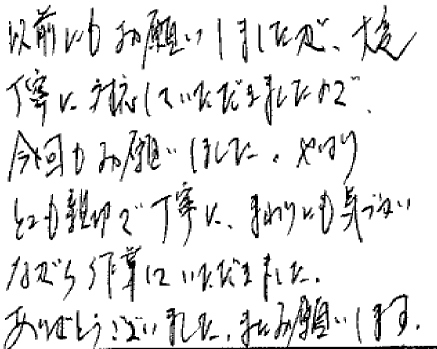 以前にもお願いしましたが、大変
丁寧に対応していただきましたので、
今回もお願いしました。やはり
とても親切で丁寧に、まわりにも気づかい
ながら作業していただきました。
ありがとうございました。またお願いします。